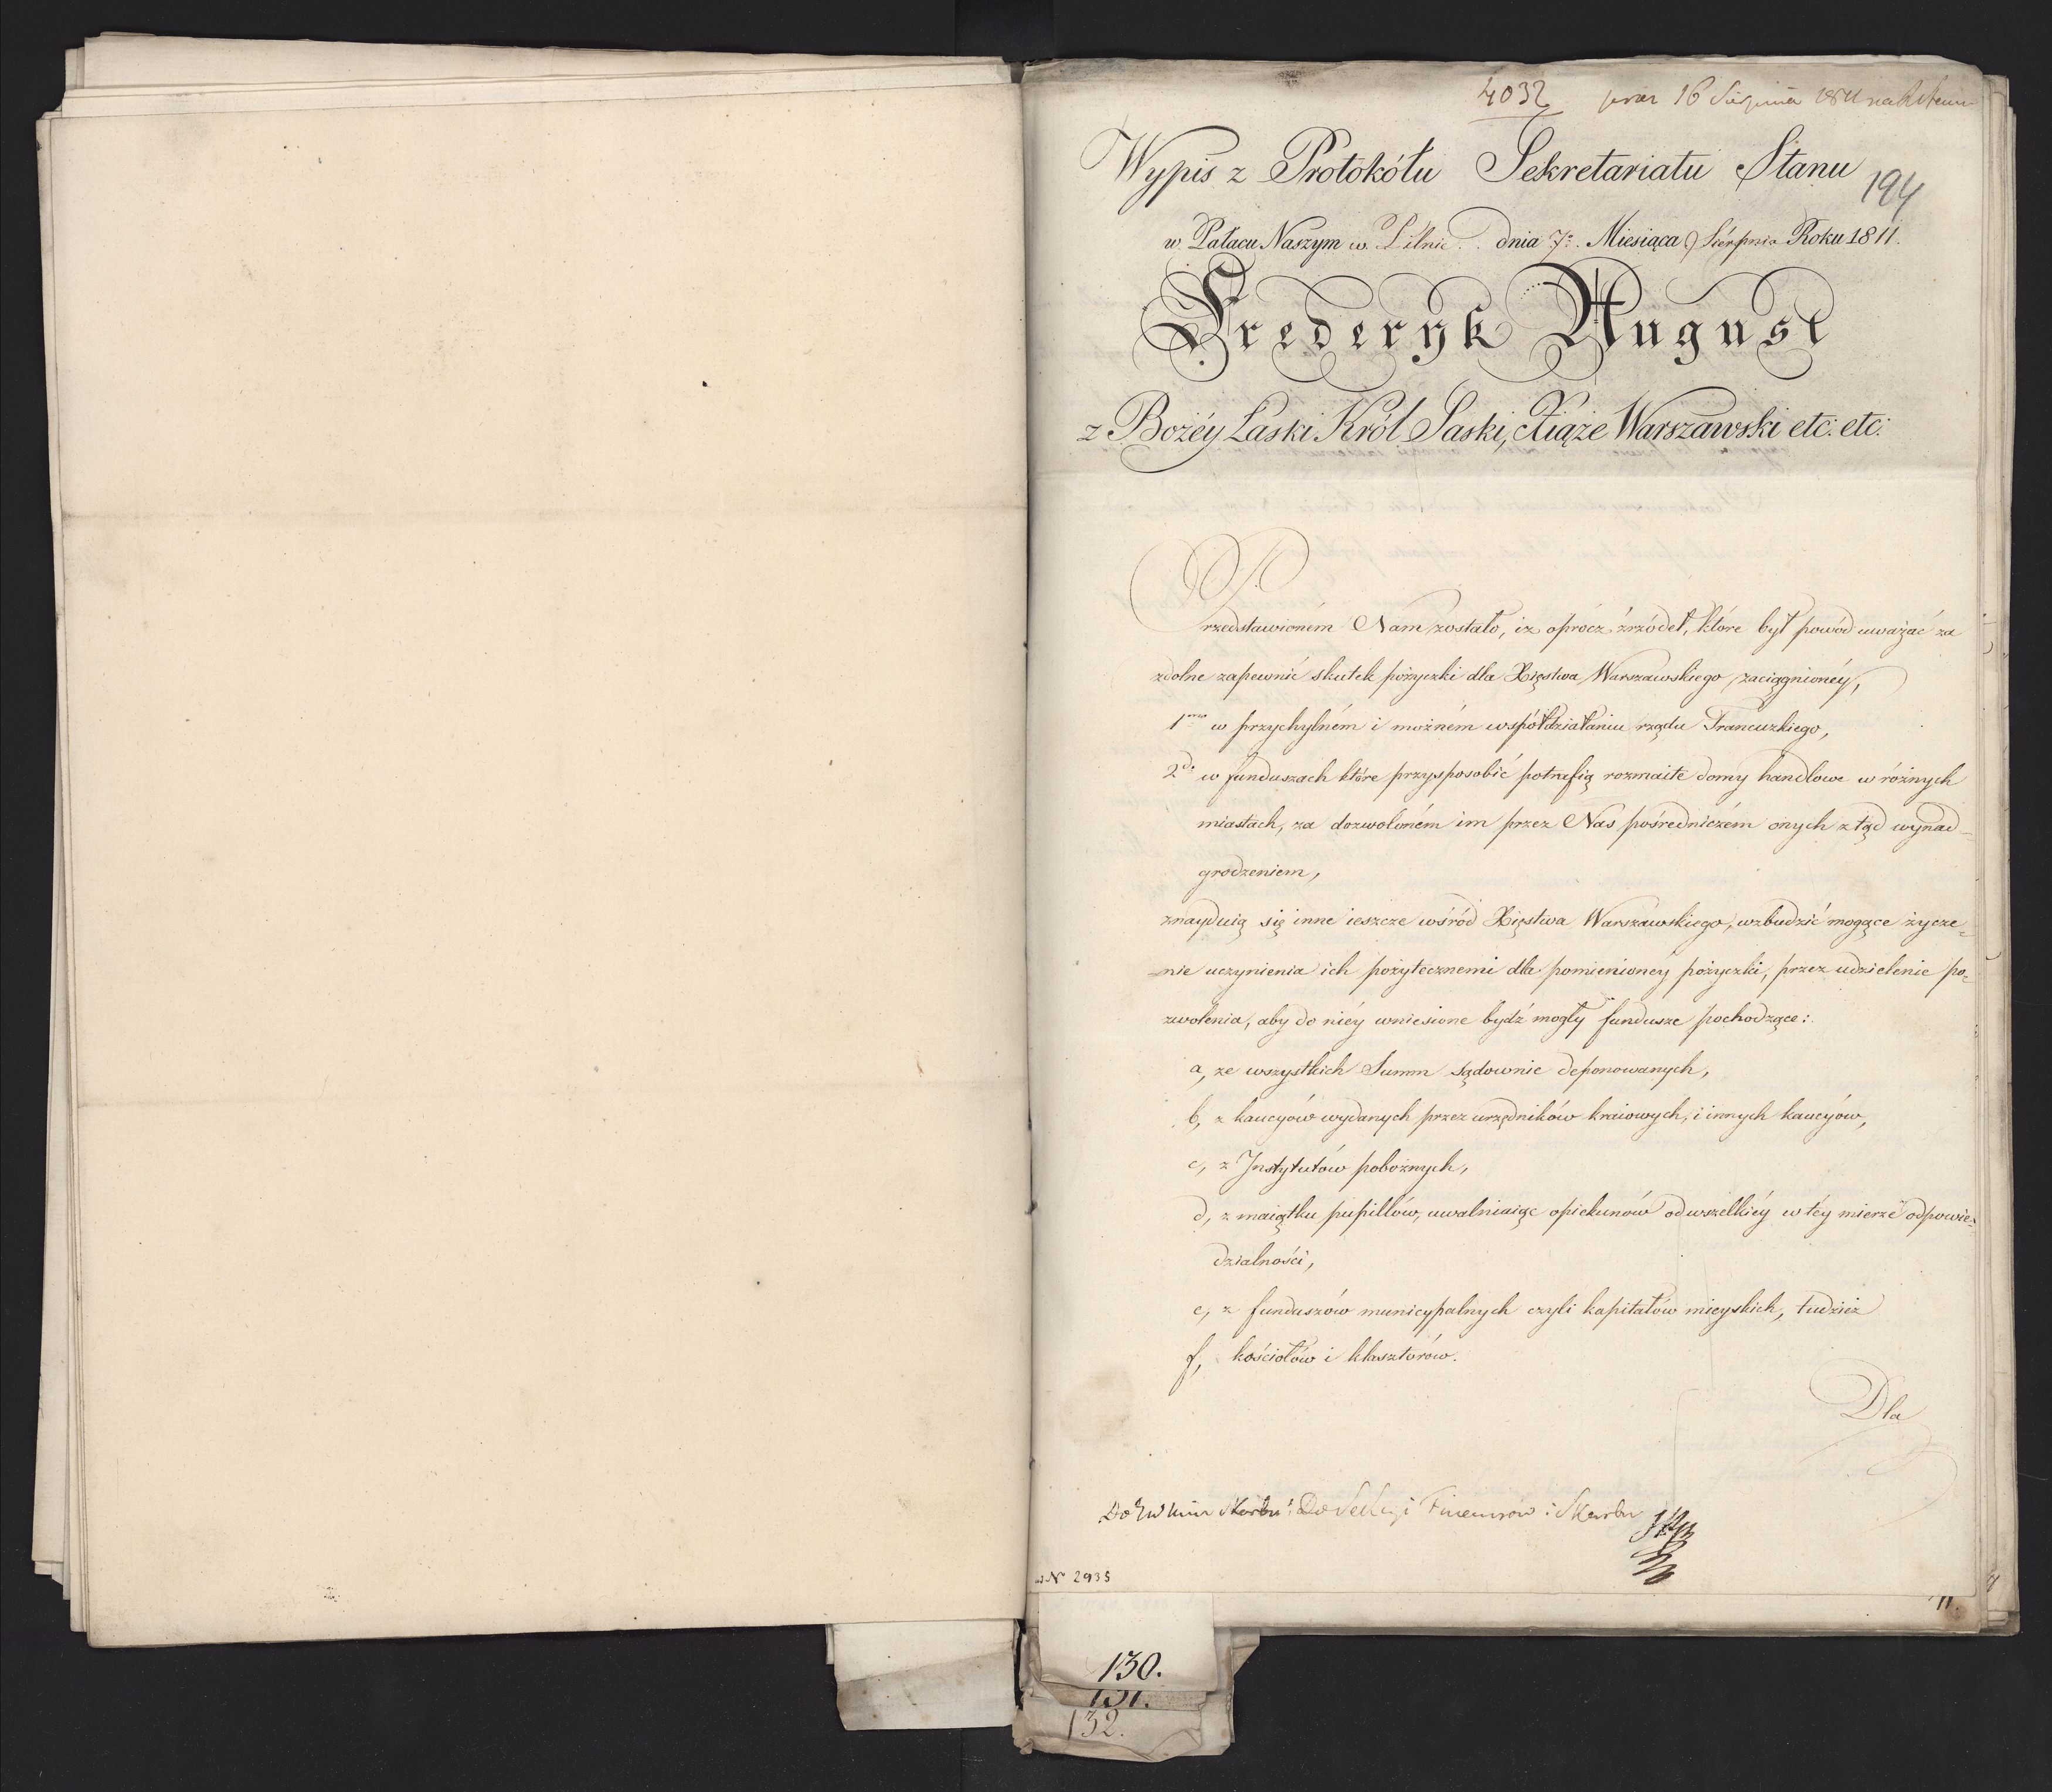 4032 16 Sierpnia 1811
Wypis z Protokółu Sekretariatu Stanu
194
w Pałacu Naszym w Pilnic dnia 7. Miesiąca Sierpnia Roku 1811.
Frederyk August
z Bożéy Łaski Król Saski, Xiąże Warszawski etc: etc:
Przedstawioném Nam zostało, iż oprócz źrzódeł, które był powód uważać za
zdolne zapewnić skutek pożyczki dla Xięstwa Warszawskiego zaciągnionéy,
1mo w przychylném i możném współdziałaniu rządu Francuzkiego,
2do w funduszach które przysposobić potrafią rozmaite domy handlowe w różnych
miastach, za dozwoloném im przez Nas pośredniczém onych ztąd wynad-
grodzeniem,
znayduią się inne ieszcze wśród Xięstwa Warszawskiego, wzbudzić mogące życze-
nie uczynienia ich pożytecznemi dla pomienioney pożyczki, przez udzielenie po-
zwolenia, aby do niéy wniesione bydź mogły fundusze pochodzące:
a, ze wszystkich Summ sądownie deponowanych,
b, z kaucyów wydanych przez urzędników kraiowych, i innych kaucyów,
c, z Instytutów pobożnych,
d, z maiątku pupillów, uwalniaiąc opiekunów od wszelkiéy w téy mierze odpowie-
dzialności,
e, z funduszów municypalnych czyli kapitałów mieyskich, tudzież
f, kościołów i klasztorów.
Dla
Skarbu Do Sekcyi Finansów i Skarbu
N 2935
11.
130.
131.
132.